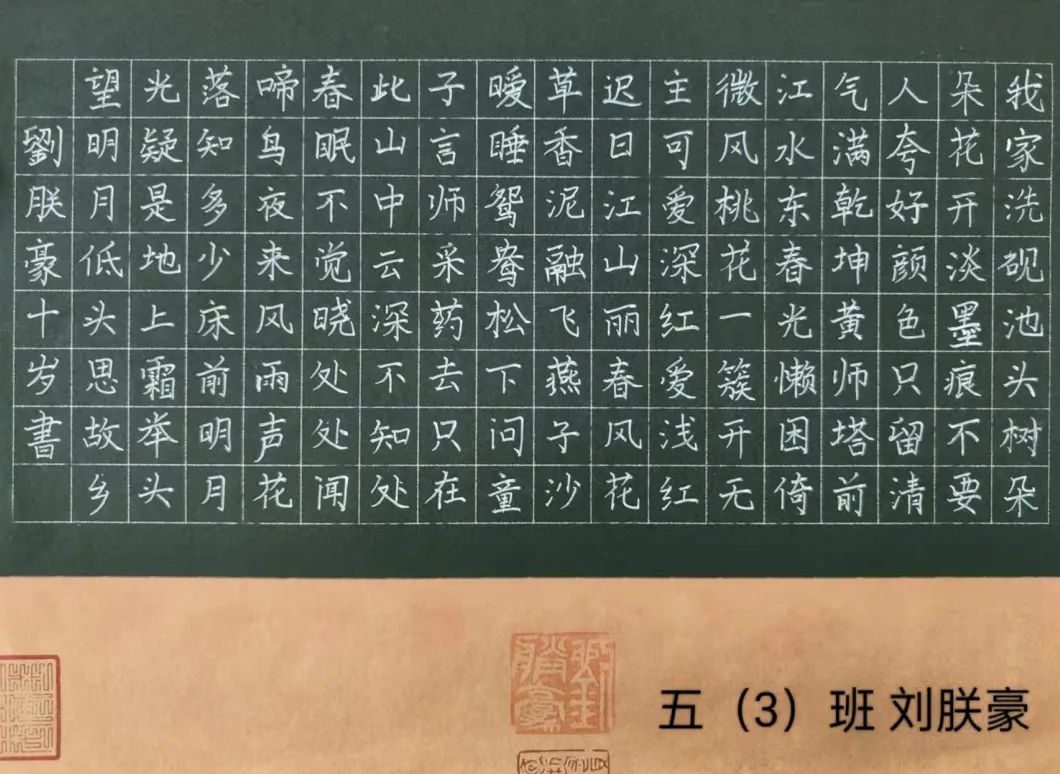 我家洗砚池头树朵
朵花开淡墨痕不要
人夸好颜色只留清
气满乾坤黄师塔前
江水东春光懒困倚
微风桃花一簇开无
主可爱深红爱浅红
迟日江山丽春风花
草香泥融飞燕子沙
暖睡鸳鸯松下问童
子言师采药去只在
此山中云深不知处
春眠不觉晓处处闻
啼鸟夜来风雨声花
落知多少床前明月
光疑是地上霜举头
望明月低头思故乡
劉朕豪十岁書
劉朕豪
五（3）班 刘朕豪